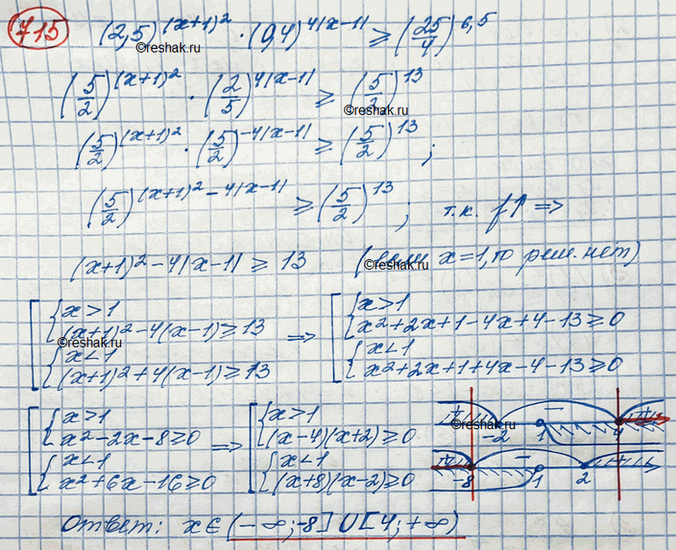 715 (2,5)^(x+1)² · (0,4)^4|x-1| ≥ (25/4)^6,5
©reshak.ru
(5/2)^(x+1)² · (2/5)^4|x-1| ≥ (5/2)^13
©reshak.ru
(5/2)^(x+1)² · (5/2)^-4|x-1| ≥ (5/2)^13 ;
(5/2)^(x+1)²-4|x-1| ≥ (5/2)^13 ; т.к. f↑ ⇒
(x+1)²-4|x-1| ≥ 13 (если x=1, то реш. нет)
©reshak.ru
[ { x>1 ⇒ [ { x>1
(x+1)²-4(x-1)≥13 x²+2x+1-4x+4-13≥0
©reshak.ru
{ x<1 { x<1
(x+1)²+4(x-1)≥13 x²+2x+1+4x-4-13≥0
[ { x>1 ⇒ [ { x>1
x²-2x-8≥0 (x-4)(x+2)≥0
{ x<1 { x<1
x²+6x-16≥0 (x+8)(x-2)≥0
+ − +
©reshak.ru
-2 1 4
+ − +
-8 1 2
Ответ: x∈(-∞;-8]U[4;+∞)